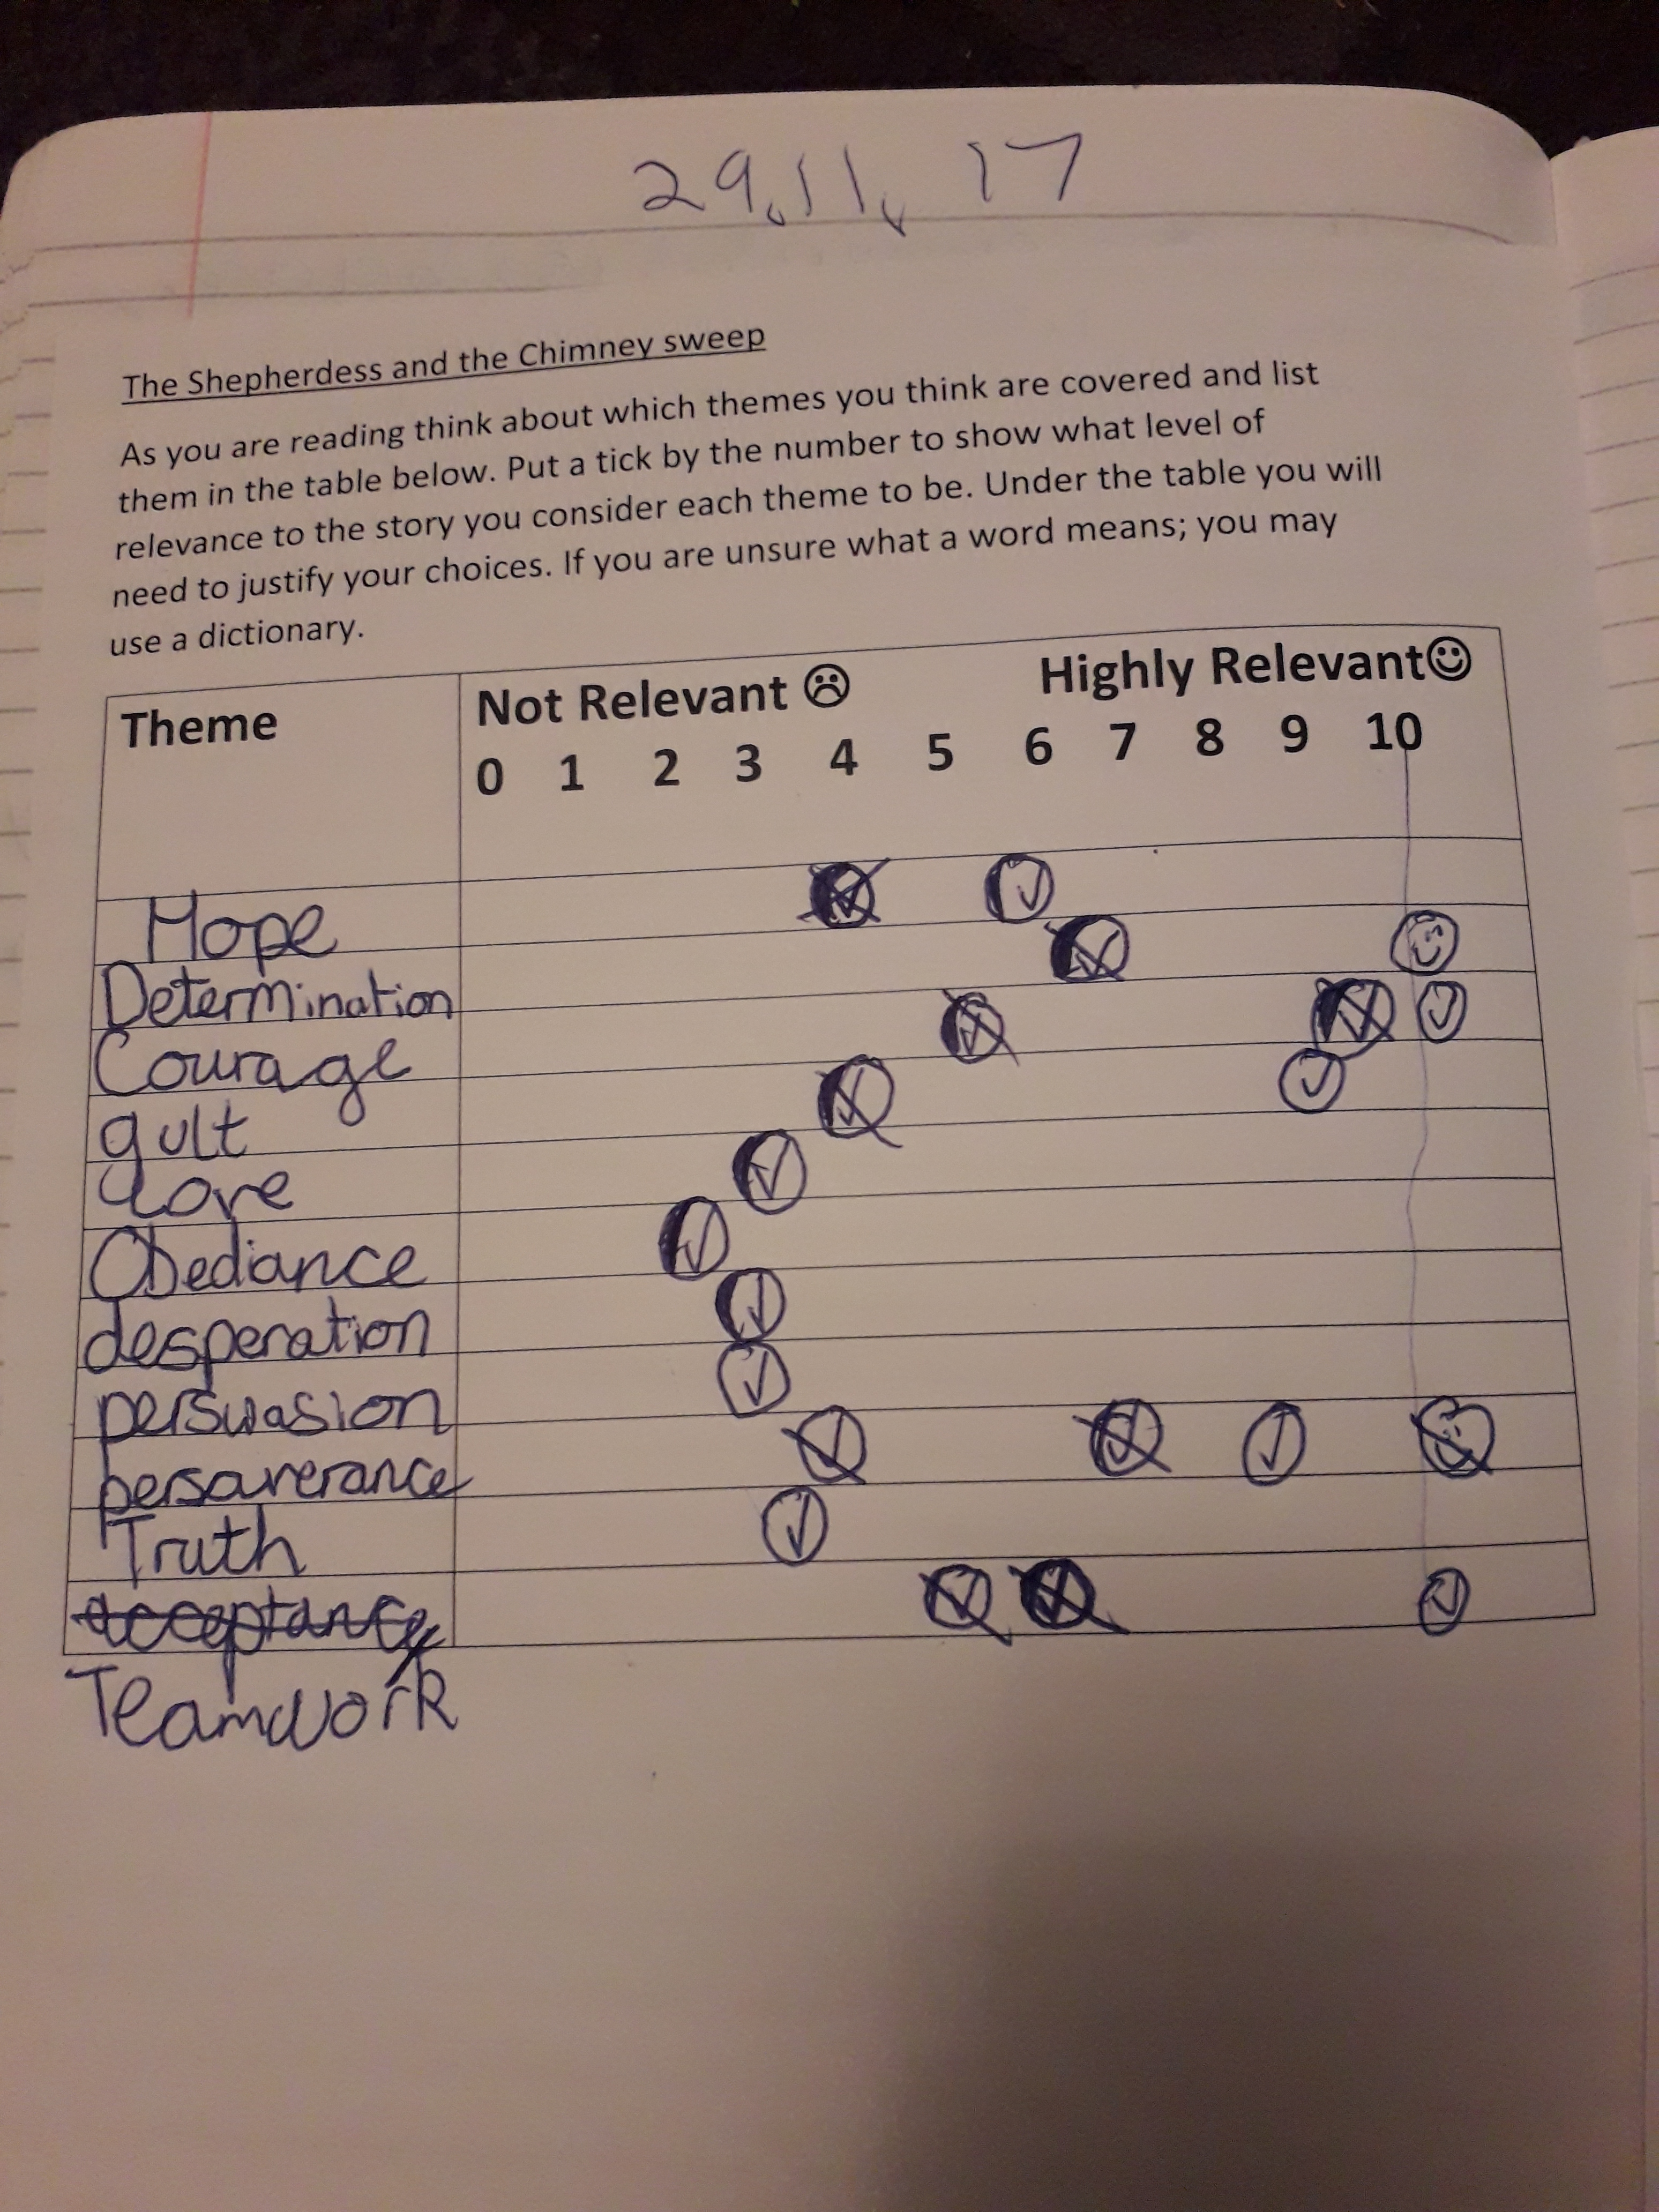 29.11.17
The Shepherdess and the Chimney sweep
As you are reading think about which themes you think are covered and list
them in the table below. Put a tick by the number to show what level of
relevance to the story you consider each theme to be. Under the table you will
need to justify your choices. If you are unsure what a word means; you may
use a dictionary.
Theme
Not Relevant ☹ Highly Relevant☺
0 1 2 3 4 5 6 7 8 9 10
Hope
Determination
Courage
gult
Love
Obediance
desperation
persuasion
persaverance
Truth
acceptance
Teamwork